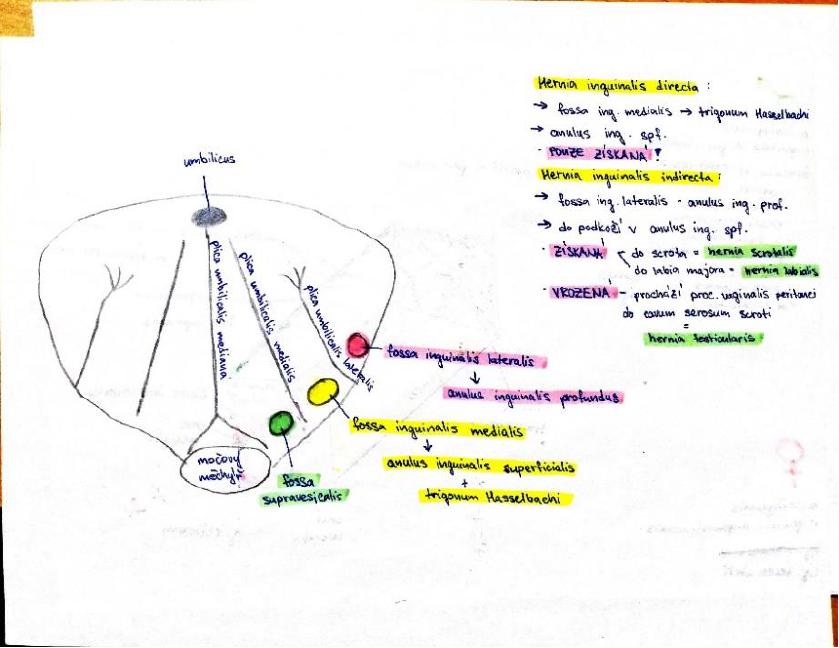 umbilicus
plica umbilicalis mediana
plica umbilicalis medialis
plica umbilicalis lateralis
močový
měchýř
fossa
supravesicalis
fossa inguinalis lateralis
↓
anulus inguinalis profundus
fossa inguinalis medialis
↓
anulus inguinalis superficialis
+
trigonum Hasselbachi
Hernia inguinalis directa :
→ fossa ing. medialis → trigonum Hasselbachi
→ anulus ing. spf.
· POUZE ZÍSKANÁ !
Hernia inguinalis indirecta :
→ fossa ing. lateralis - anulus ing. prof.
→ do podkoží v anulus ing. spf.
· ZÍSKANÁ do scrota = hernia scrotalis
do labia majora = hernia labialis
· VROZENÁ - prochází proc. vaginalis peritonei
do cavum serosum scroti
=
hernia testicularis